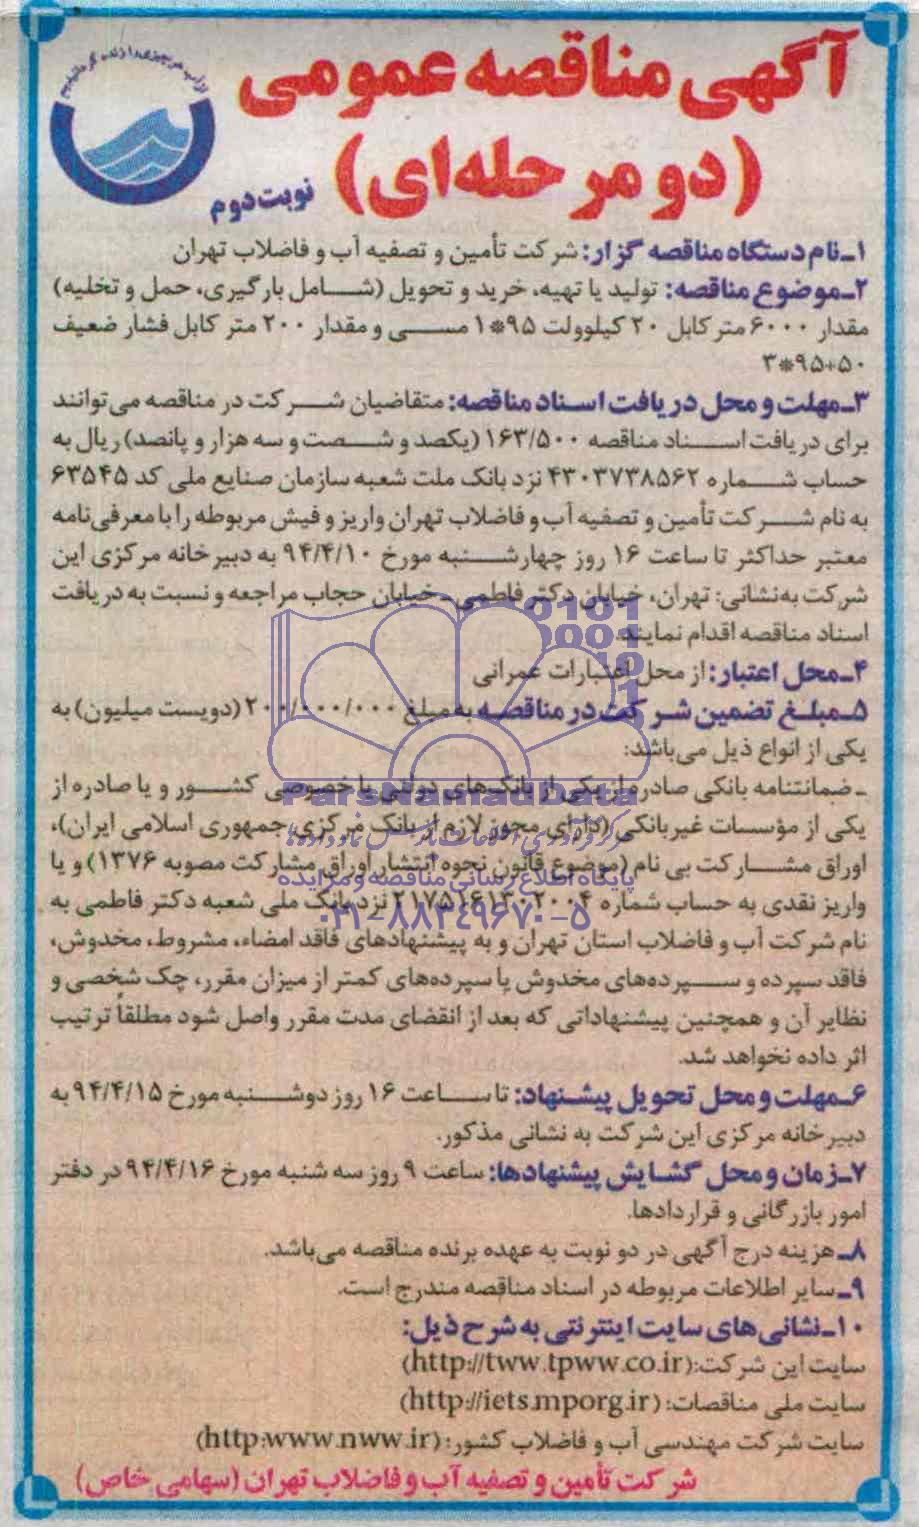 از آب هر چیزی را زنده گردانیدیم
آگهی مناقصه عمومی
(دو مرحله‌ای)
نوبت دوم
۱ـ نام دستگاه مناقصه گزار: شرکت تأمین و تصفیه آب و فاضلاب تهران
۲ـ موضوع مناقصه: تولید یا تهیه، خرید و تحویل (شامل بارگیری، حمل و تخلیه)
مقدار ۶۰۰۰ متر کابل ۲۰ کیلوولت ۹۵*۱ مسی و مقدار ۲۰۰ متر کابل فشار ضعیف
۳*۹۵+۵۰
۳ـ مهلت و محل دریافت اسناد مناقصه: متقاضیان شرکت در مناقصه می‌توانند
برای دریافت اسناد مناقصه ۱۶۳/۵۰۰ (یکصد و شصت و سه هزار و پانصد) ریال به
حساب شماره ۴۳۰۳۷۳۸۵۶۲ نزد بانک ملت شعبه سازمان صنایع ملی کد ۶۳۵۴۵
به نام شرکت تأمین و تصفیه آب و فاضلاب تهران واریز و فیش مربوطه را با معرفی‌نامه
معتبر حداکثر تا ساعت ۱۶ روز چهارشنبه مورخ ۹۴/۴/۱۰ به دبیرخانه مرکزی این
شرکت به‌نشانی: تهران، خیابان دکتر فاطمی ـ خیابان حجاب مراجعه و نسبت به دریافت
اسناد مناقصه اقدام نمایند.
۴ـ محل اعتبار: از محل اعتبارات عمرانی
۵ـ مبلغ تضمین شرکت در مناقصه به مبلغ ۲۰۰/۰۰۰/۰۰۰ (دویست میلیون) به
یکی از انواع ذیل می‌باشد:
ـ ضمانتنامه بانکی صادره از یکی از بانک‌های دولتی یا خصوصی کشور و یا صادره از
ParsNamadData
یکی از مؤسسات غیربانکی (دارای مجوز لازم از بانک مرکزی جمهوری اسلامی ایران)،
اوراق مشارکت بی نام (موضوع قانون نحوه انتشار اوراق مشارکت مصوبه ۱۳۷۶) و یا
پایگاه اطلاع رسانی مناقصه و مزایده
واریز نقدی به حساب شماره نزد بانک ملی شعبه دکتر فاطمی به
۰۲۱-۸۸۳۴۹۶۷۰-۵
نام شرکت آب و فاضلاب استان تهران و به پیشنهادهای فاقد امضاء، مشروط، مخدوش،
فاقد سپرده و سپرده‌های مخدوش یا سپرده‌های کمتر از میزان مقرر، چک شخصی و
نظایر آن و همچنین پیشنهاداتی که بعد از انقضای مدت مقرر واصل شود مطلقاً ترتیب
اثر داده نخواهد شد.
۶ـ مهلت و محل تحویل پیشنهاد: تا ساعت ۱۶ روز دوشنبه مورخ ۹۴/۴/۱۵ به
دبیرخانه مرکزی این شرکت به نشانی مذکور.
۷ـ زمان و محل گشایش پیشنهادها: ساعت ۹ روز سه شنبه مورخ ۹۴/۴/۱۶ در دفتر
امور بازرگانی و قراردادها.
۸ـ هزینه درج آگهی در دو نوبت به عهده برنده مناقصه می‌باشد.
۹ـ سایر اطلاعات مربوطه در اسناد مناقصه مندرج است.
۱۰ـ نشانی‌های سایت اینترنتی به شرح ذیل:
سایت این شرکت: (http://tww.tpww.co.ir)
سایت ملی مناقصات: (http://iets.mporg.ir)
سایت شرکت مهندسی آب و فاضلاب کشور: (http:www.nww.ir)
شرکت تأمین و تصفیه آب و فاضلاب تهران (سهامی خاص)